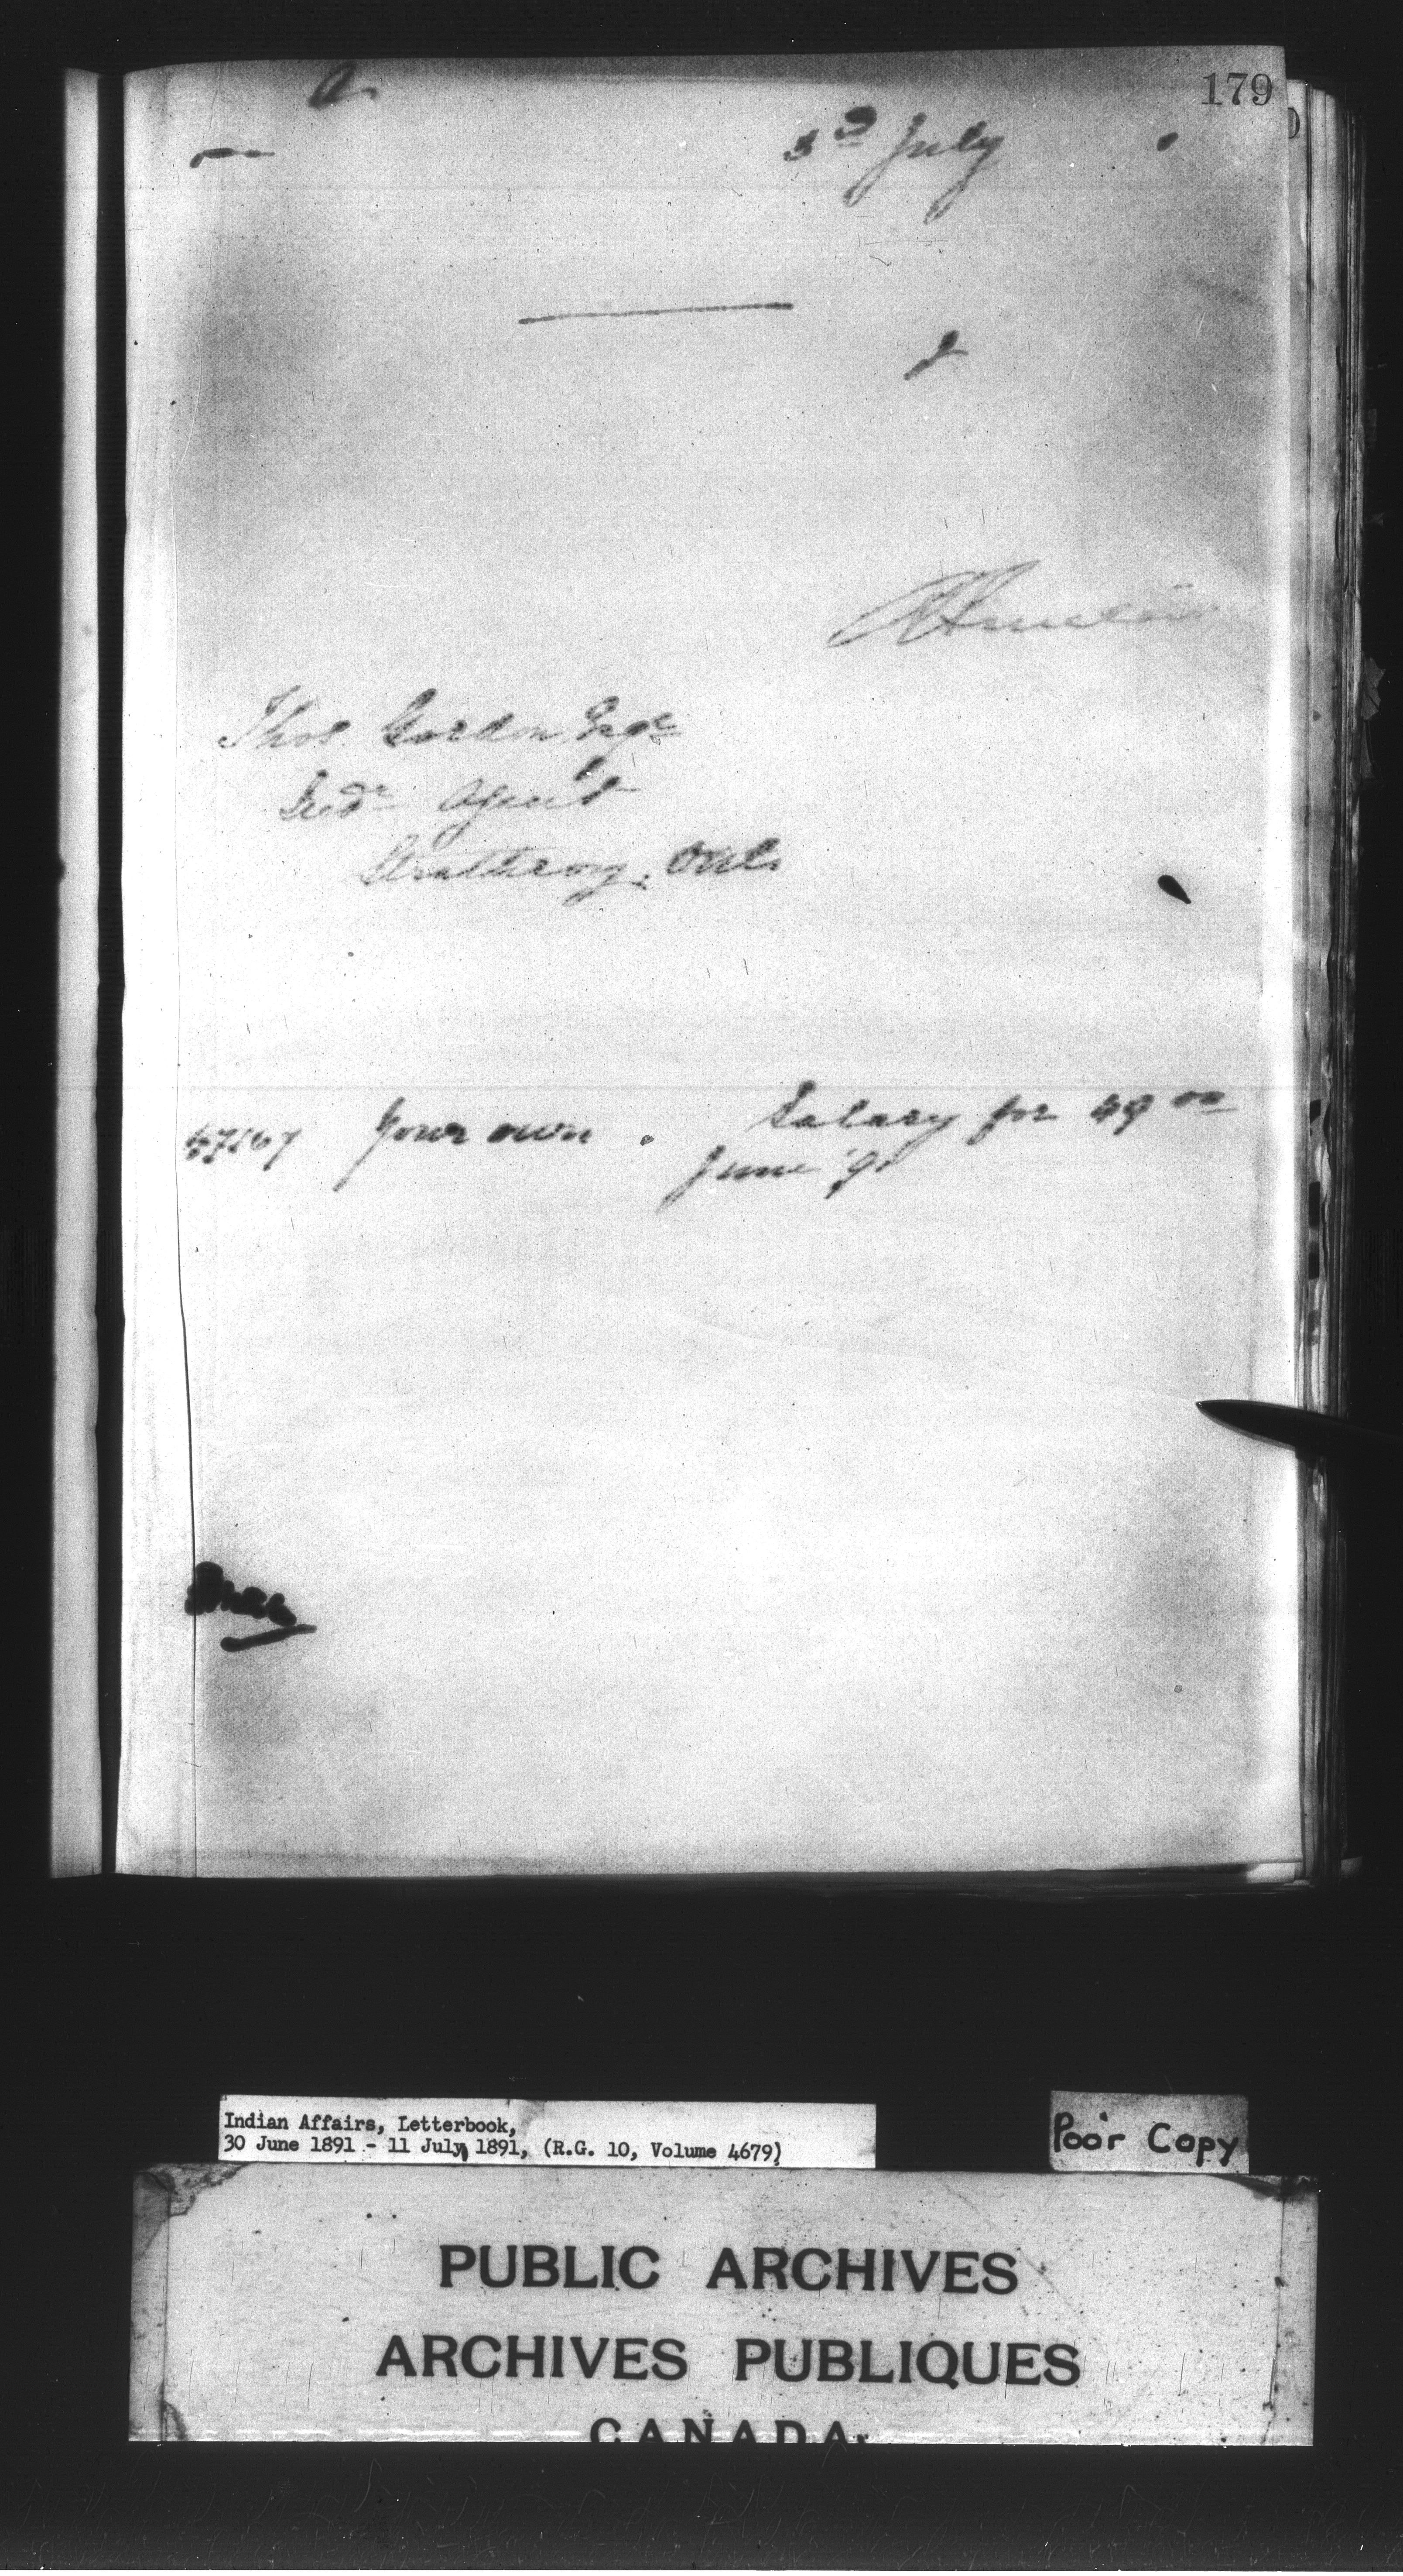 179
3d July
Thos. Gordon Esqe
Indn Agent
Strathroy, Ont.
Your own . Salary for 49 00
June '91
Indian Affairs, Letterbook,
30 June 1891 - 11 July 1891, (R.G. 10, Volume 4679)
Poor Copy
PUBLIC ARCHIVES
ARCHIVES PUBLIQUES
CANADA